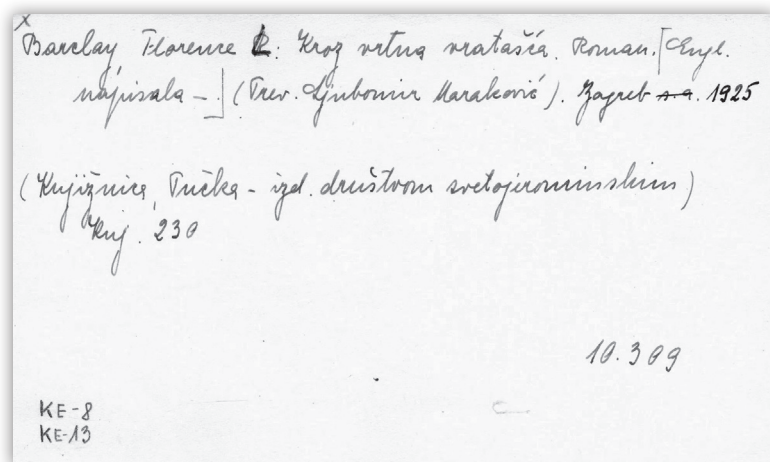 x
Barclay Florence L.: Kroz vrtna vratašća. Roman. [Engl.
napisala –.] (Prev. Ljubomir Maraković). Zagreb s.a. 1925
(Knjižnica, Pučka – izd. društvom svetojeronimskim)
Knj. 230
10.309
KE-8
KE-13